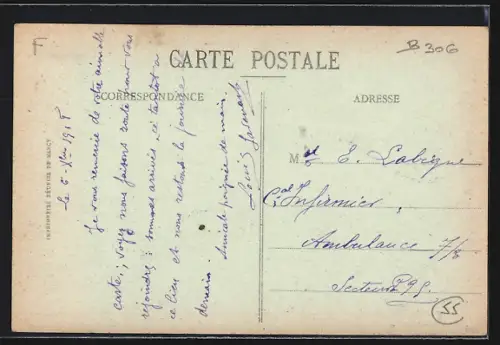 F
B 306
CARTE POSTALE
CORRESPONDANCE
ADRESSE
IMPRIMERIES RÉUNIES DE NANCY
Le 6-Xbre 1918
Je vous remercie de votre aimable
carte; voyez nous faisons route pour vous
rejoindre; sommes arrivés ce tantôt à
ce lieu et nous restons la journée
demain. Amicale poignée de main.
Louis
Md E. Labigne
Cal Infirmier,
Ambulance 7/8
Secteur 295
55